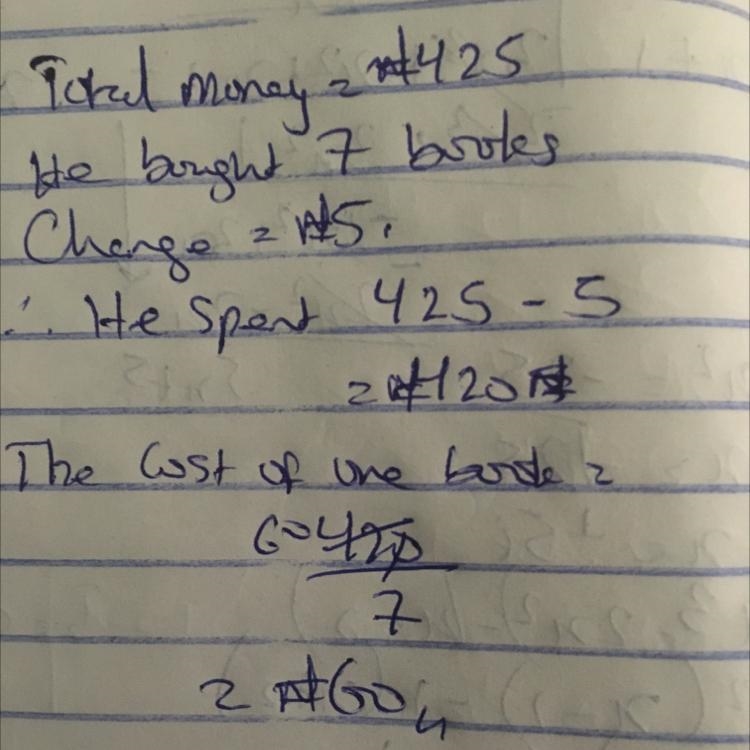 Total money = ₦425
He bought 7 books
Change = ₦5.
∴ He spent 425 - 5
= ₦420
The cost of one book =
60 420
7
= ₦60